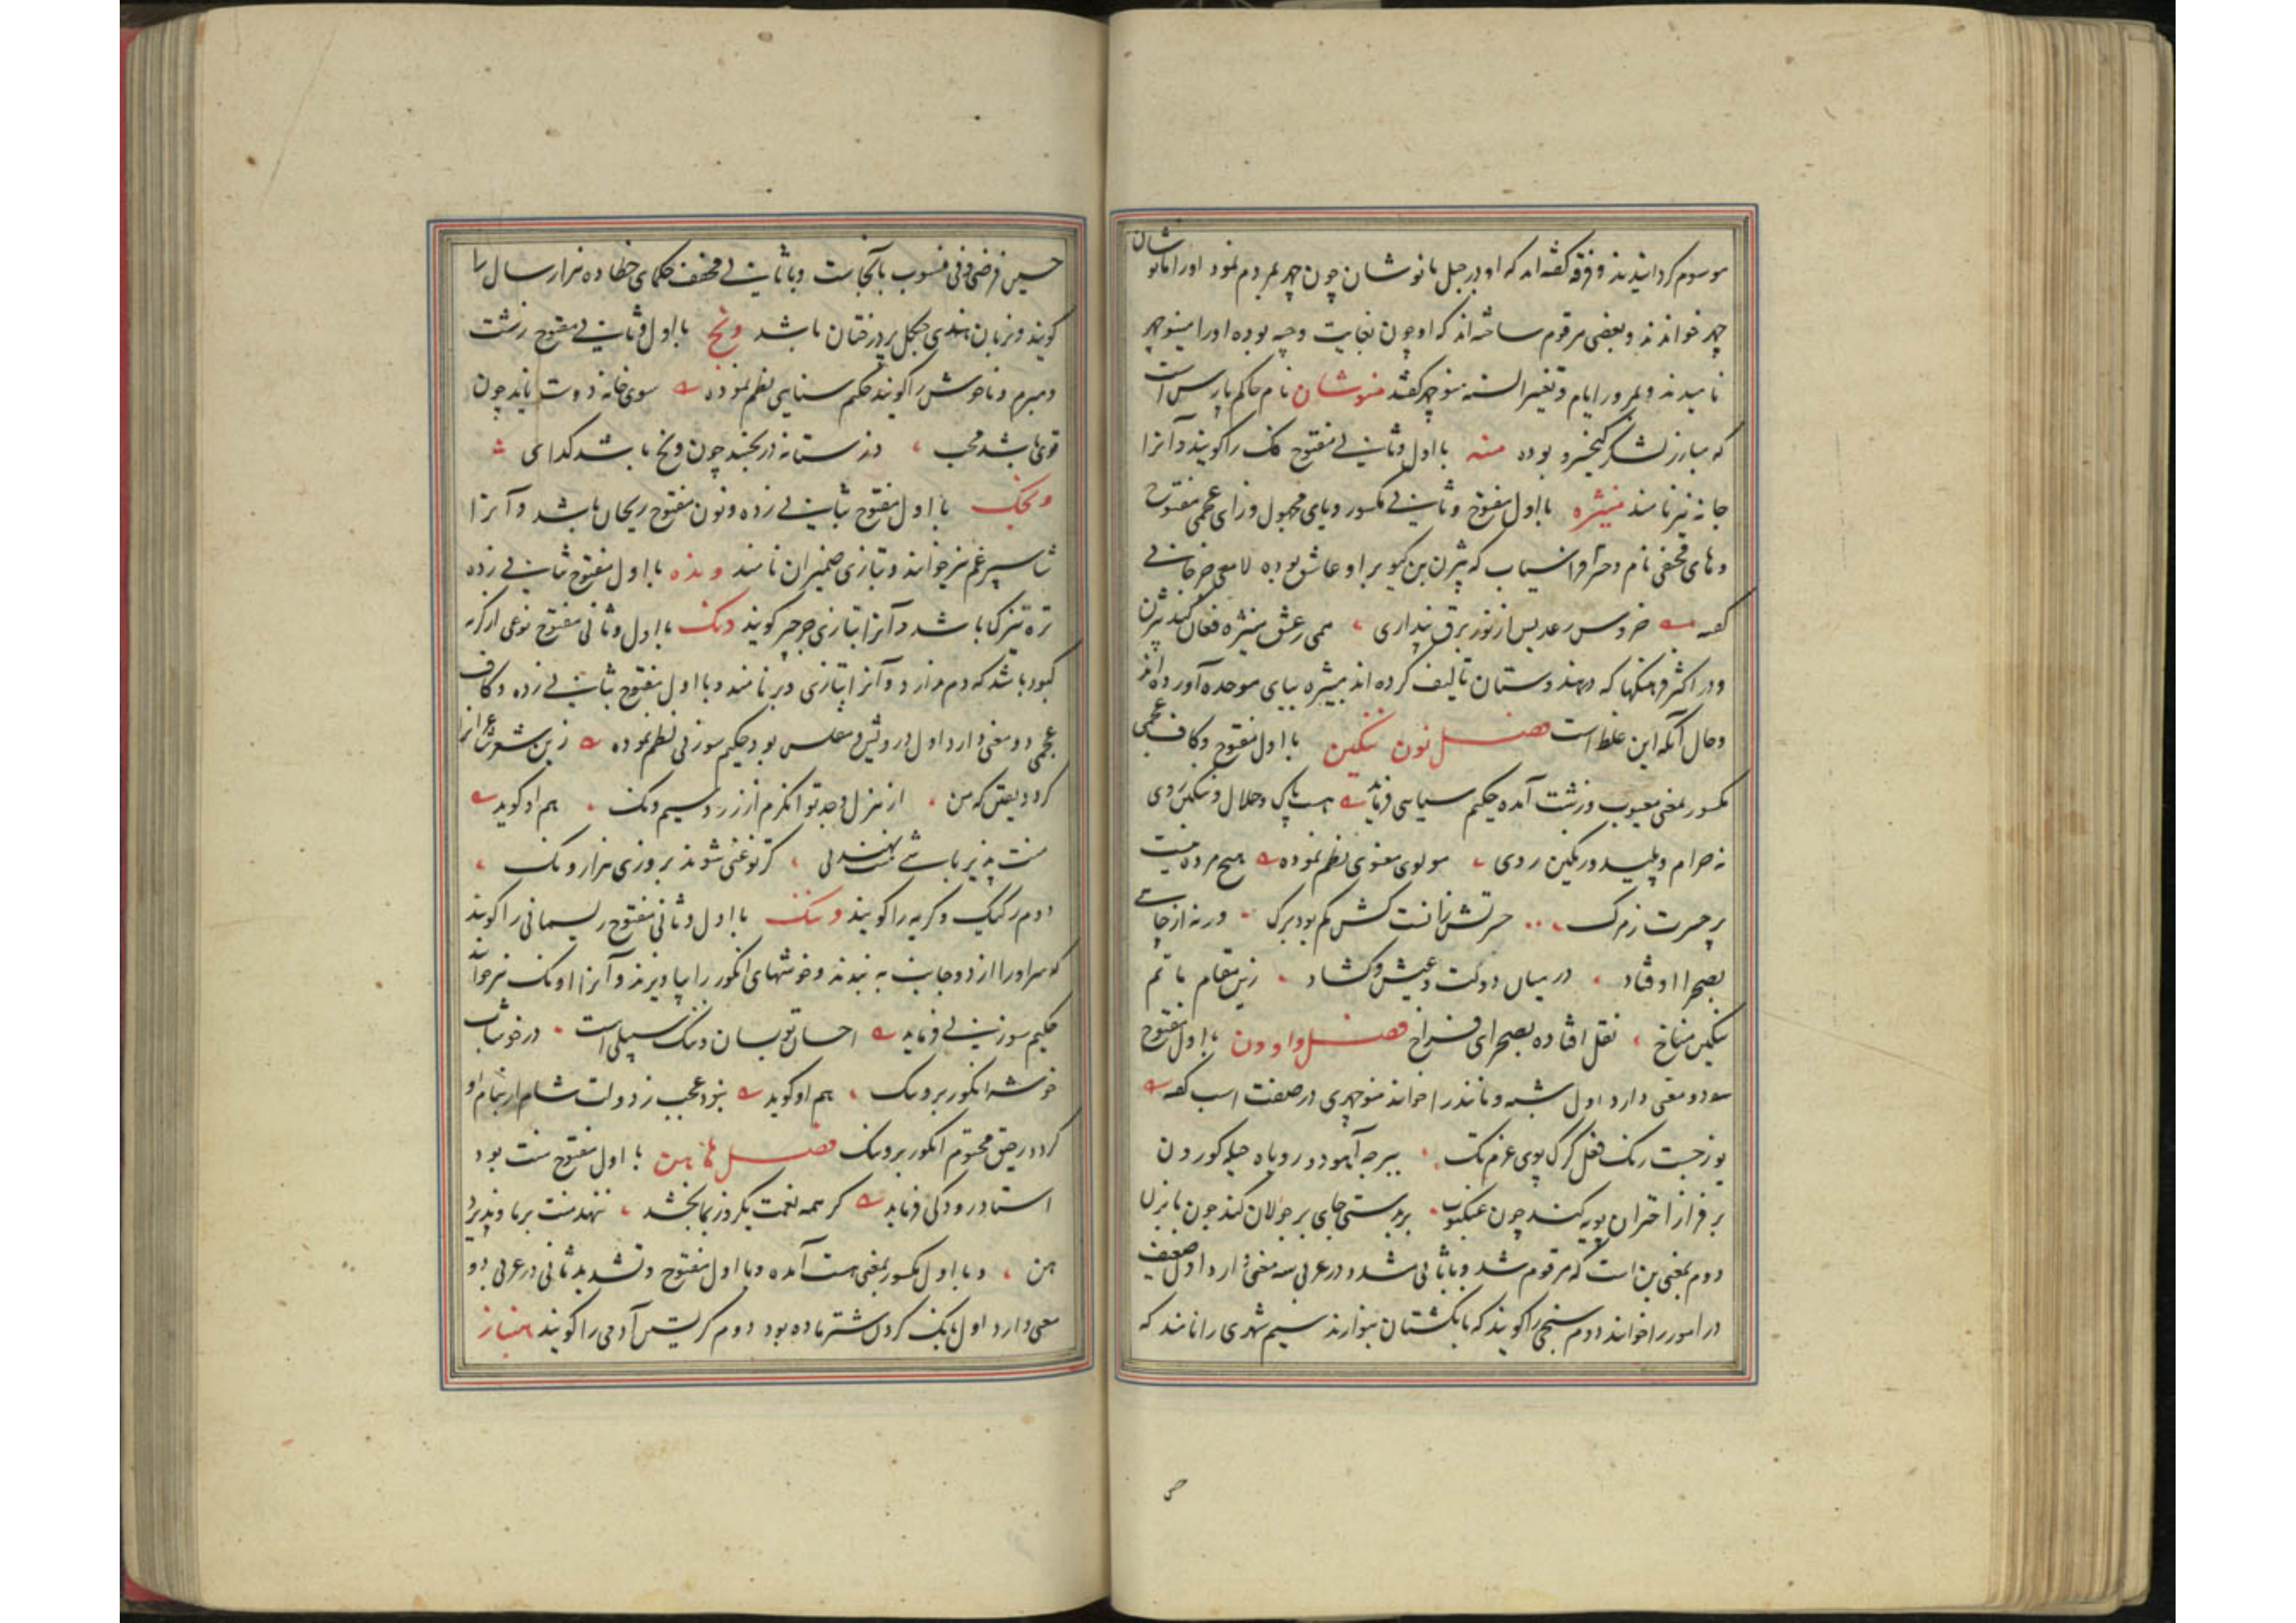 موسوم گردانیدند و فرقه گفته‌اند که او در جبل مانوشان چون چهر بمردم نمود او را مانوشان
چهر خواندند و بعضی مرقوم ساخته‌اند که او چون بغایت وجیه بوده او را مینوچهر
نامیدند و بمرور ایام و تغییر السنه منوچهر گفتند منوشان نام حاکم پارس است
که مبارز لشکر کیخسرو بوده منه با اول و ثانی مفتوح فک را گویند و آنرا
چانه نیز نامند منیژه با اول مفتوح و ثانی مکسور و یای مجهول و زای عجمی مفتوح
و های مختفی نام دختر افراسیاب که بیژن بن گیو بر او عاشق بوده لامعی جرجانی
گفته خروس رعد پس از نور برق پنداری همی ز عشق منیژه فغان کند بیژن
و در اکثر فرهنگها که در هندوستان تالیف کرده‌اند بیژه ببای موحده آورده‌اند
و حال آنکه این غلط است فصل نون ننگین با اول مفتوح و کاف عجمی
مکسور بمعنی معیوب و زشت آمده حکیم سنایی فرماید هست پاک و حلال و ننگین روی
نه حرام و پلید و رنگین روی مولوی معنوی نظم نموده هیچ مرده نیست
پر حسرت ز مرگ حسرتش آنست کش کم بود برگ ورنه از چاهی
بصحرا اوفتاد در میان دولت و عیش و گشاد زین مقام ماتم
ننگین مناخ نقل افتاده بصحرای فراخ فصل واو ون با اول مفتوح
دو معنی دارد اول شبه و مانند را خوانند منوچهری در صفت اسب گفته
یوز جست و رنگ فعل و گرگ پوی و غرم تک ببر جه آهو دو و روباه حیله گور دن
بر فراز اختران پویه کند چون عنکبوت بر بدستی جای بر جولان کند چون بابزن
دوم بمعنی بن است که مرقوم شد و با ثانی مشدد در عربی سه معنی دارد اول ضعیف
در امور را خوانند دوم سنجی را گویند که بانگشتان بنوازند سیم شهری را نامند که
حسین فرضی ونی منسوب بآنجاست و با ثانی مخفف حکمای خطا ده هزار سال را
گویند و بزبان هندی جنگل پر درختان باشد ونج با اول و ثانی مفتوح زشت
و مبرم و ناخوش را گویند حکیم سنایی نظم نموده سوی خانه دوست ناید چون
قوی باشد محب در ستانه در نجنبد چون ونج باشد گدای
ونجنک با اول مفتوح بثانی زده و نون مفتوح ریحان باشد و آنرا
شاسپرغم نیز خوانند و بتازی ضیمران نامند ونده با اول مفتوح بثانی زده
تره تیزک باشد و آنرا بتازی جرجیر گویند ونک با اول و ثانی مفتوح نوعی از گربه
کبود باشد که دم ندارد و آنرا بتازی وبر نامند و با اول مفتوح بثانی زده و کاف
عجمی دو معنی دارد اول درویش و مفلس بود حکیم سوزنی نظم نموده زین شعر غرا
گردد یقین که من از هزل و جد توانگرم از زر و سیم ونک هم او گوید
منت پذیر باشی منت نهند نی کز تو غنی شوند بروزی هزار ونک
دوم رکیک و کریه را گویند وننگ با اول و ثانی مفتوح ریسمانی را گویند
که سر او را از دو جانب به بندند و خوشهای انگور را بیاویزند و آنرا اونگ نیز خوانند
حکیم سوزنی فرماید احسان تو بسان وننگ سپیلی است در خوشاب
خوشه انگور بر وننگ هم او گوید نبود عجب ز دولت شام ار بنام او
گردد رحیق مختوم انگور بر وننگ فصل ها هن با اول مفتوح منت بود
استاد رودکی فرماید گر همه نعمت یکروز بما بخشد ننهد منت بر ما و پذیرد
هن و با اول مکسور بمعنی هست آمده و با اول مفتوح و تشدید ثانی در عربی دو
معنی دارد اول بانگ کردن شتر ماده بود دوم گریستن آدمی را گویند هنباز